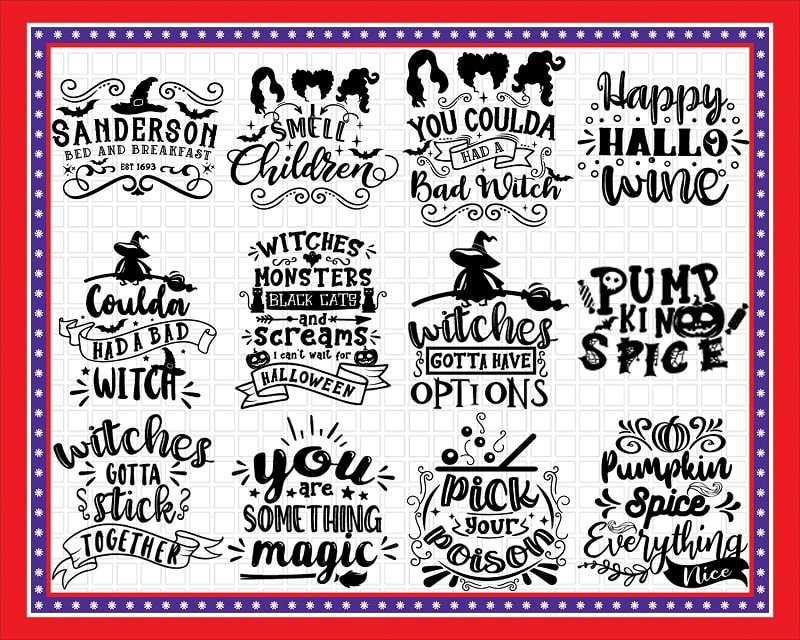 SANDERSON
BED AND BREAKFAST
EST 1693
I
SMELL
Children
YOU COULDA
HAD A
Bad Witch
Happy
HALLO
wine
Coulda
HAD A BAD
WITCH
WITCHES
MONSTERS
BLACK CATS
and
SCREAMS
I can't wait for
HALLOWEEN
witches
GOTTA HAVE
OPTIONS
PUMP
KIN
SPICE
witches
GOTTA
stick
TOGETHER
you
are
SOMETHING
magic
Pick
your
poison
Pumpkin
Spice
Everything
Nice